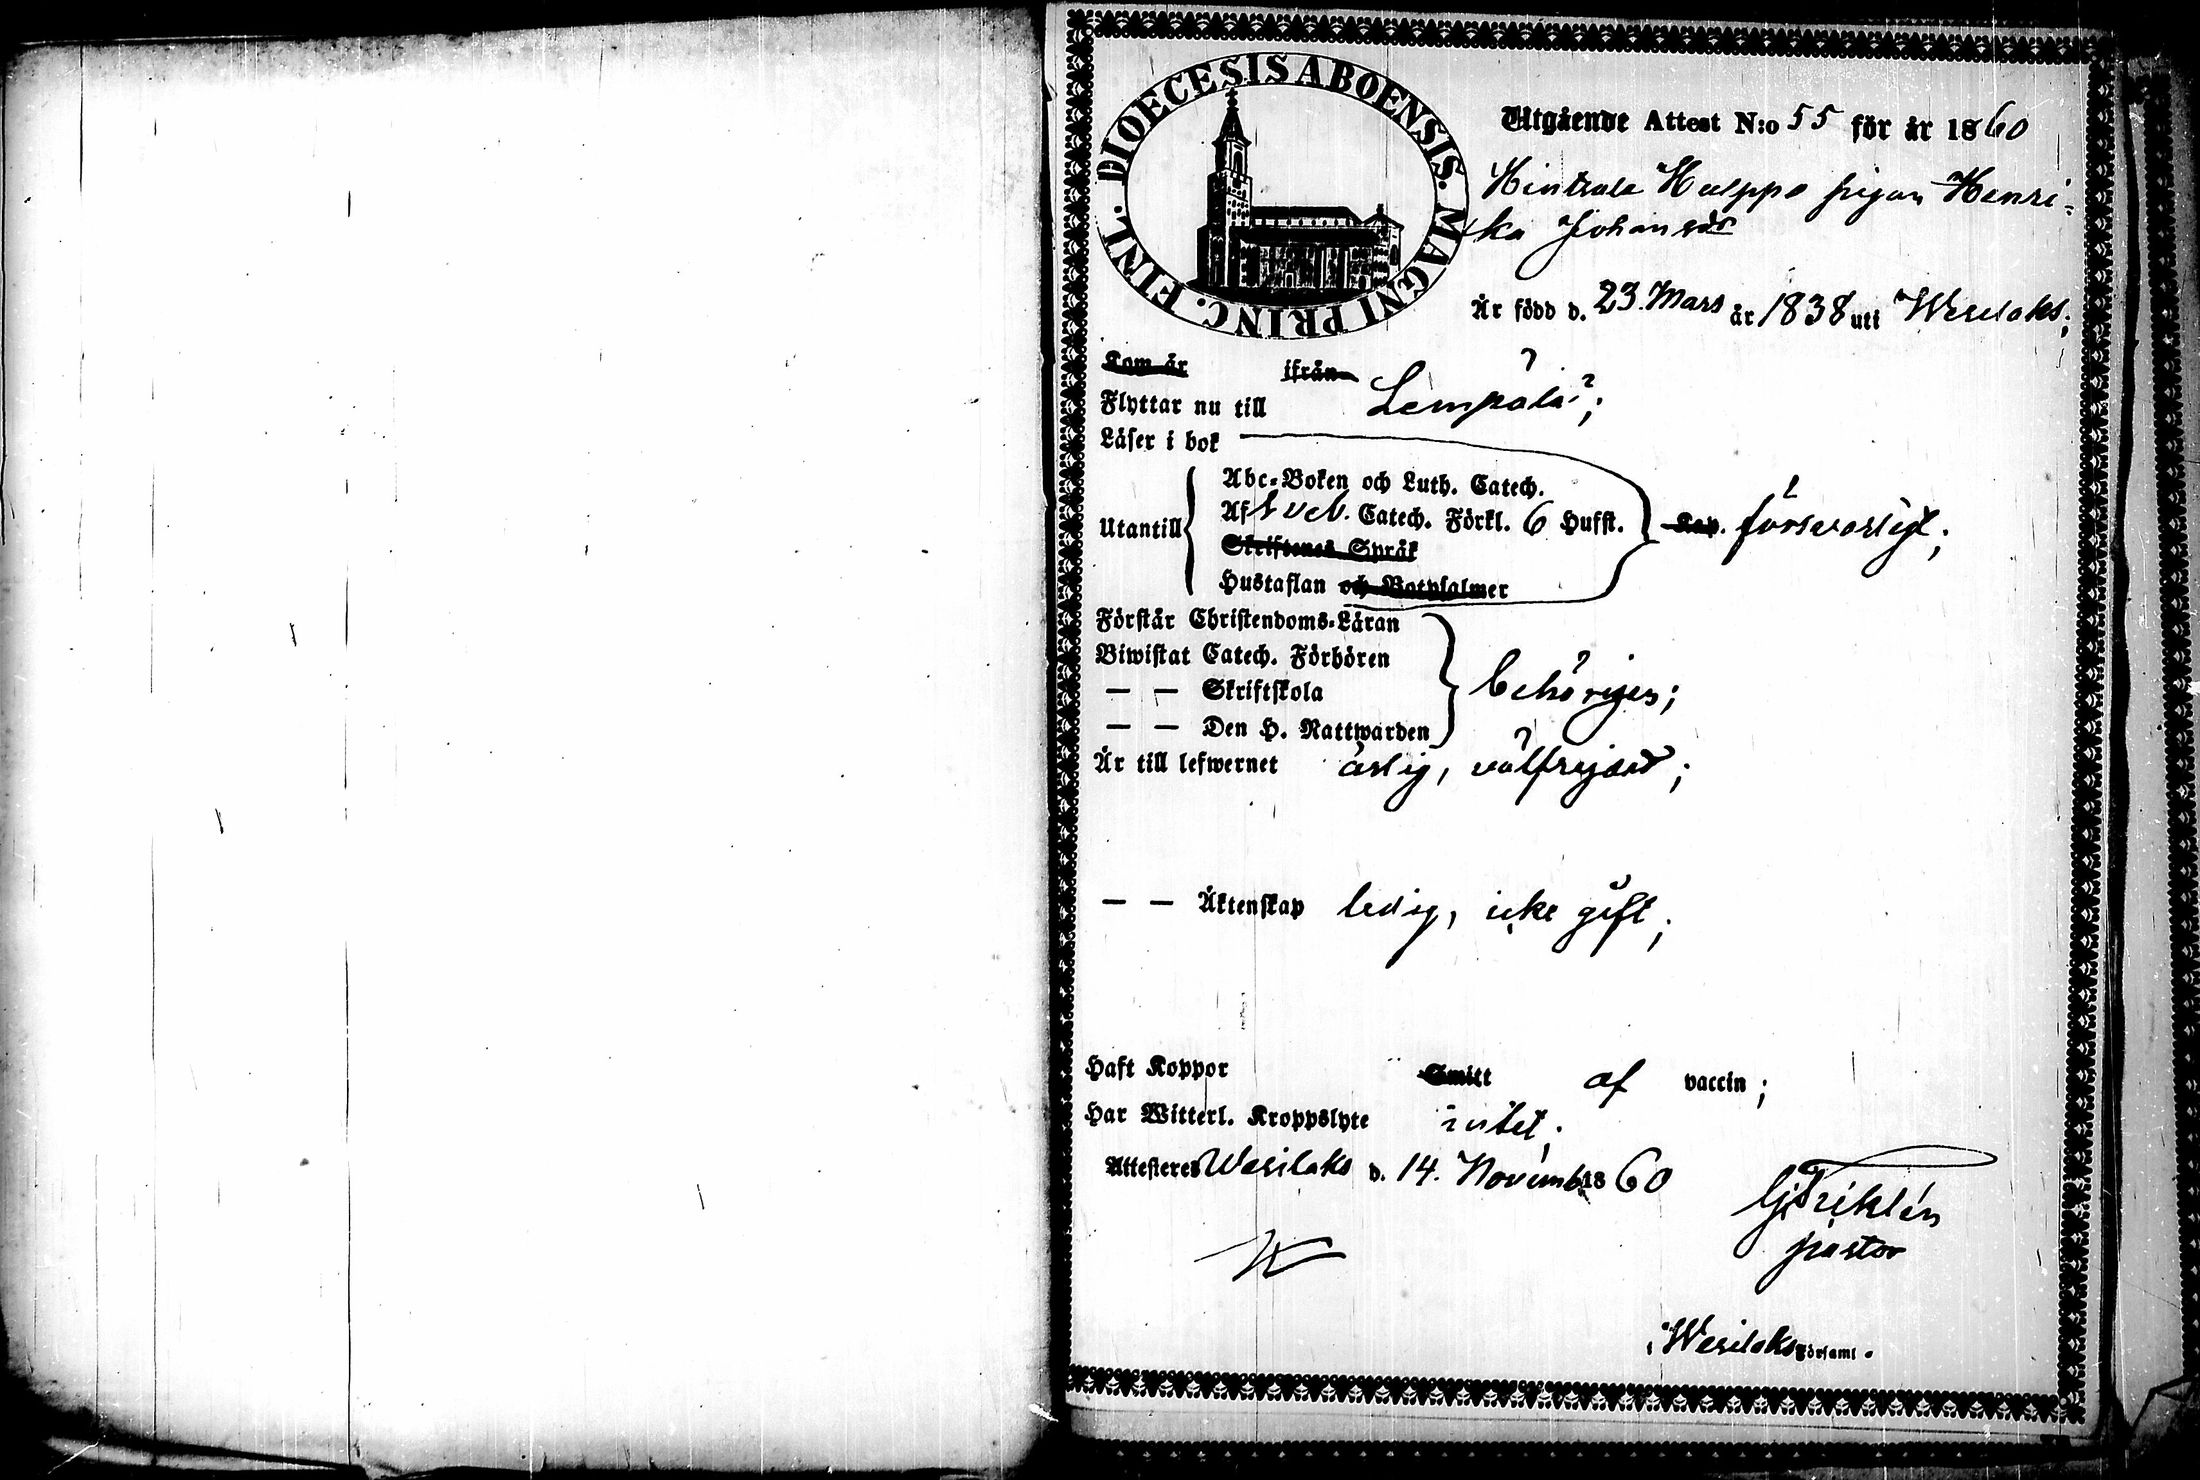 DIOECESIS ABOENSIS. MAGNI PRINC. FINL.
Utgående Attest N:o 55 för år 1860
Hintsala Hulppo pigan Henri-
ka Johansdr
Är född d. 23. Mars år 1838 uti Wesilaks;
Kom år ifrån
Flyttar nu till Lempälä;
Läser i bok
Abc-Boken och Luth. Catech.
Utantill Af Sveb. Catech. Förkl. 6 Hufst. Kap. försvarligt;
Skriftenes Språk
Hustaflan och Botpsalmer
Förstår Christendoms-Läran
Biwistat Catech. Förhören
— — Skriftskola behörigen;
— — Den H. Nattwarden
Är till lefwernet ärlig, välfrejdad;
— — Äktenskap ledig, icke gift;
Haft Koppor Smitt af vaccin;
Har Witterl. Kroppslyte intet;
Attesteres Wesilaks d. 14. Novemb 1860
Friklén
pastor
i Wesilaks Församl.